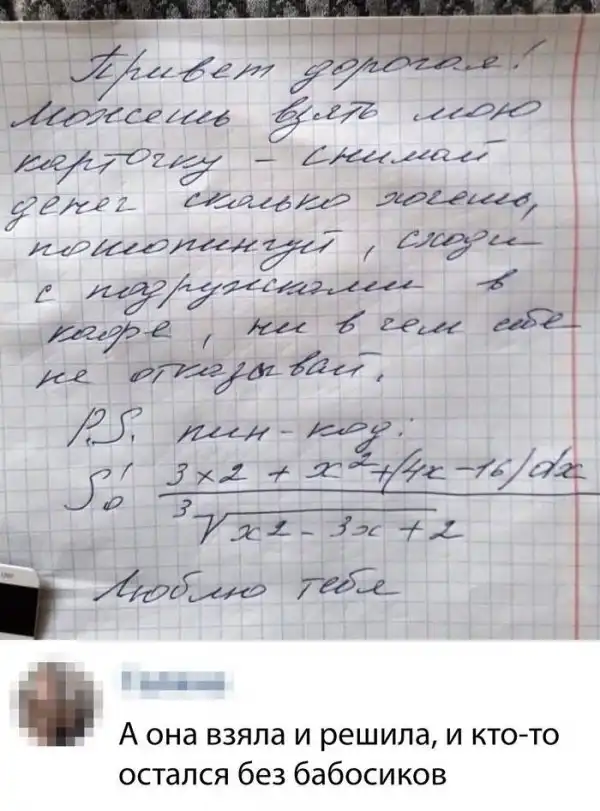 Привет дорогая!
Можешь взять мою
карточку - снимай
денег сколько хочешь,
пошопингуй, сходи
с подружками в
кафе, ни в чем себе
не отказывай.
P.S. пин-код:
∫₀¹ 3x2 + x² + (4x - 16) dx
∛x2 - 3x + 2
Люблю тебя
А она взяла и решила, и кто-то
остался без бабосиков